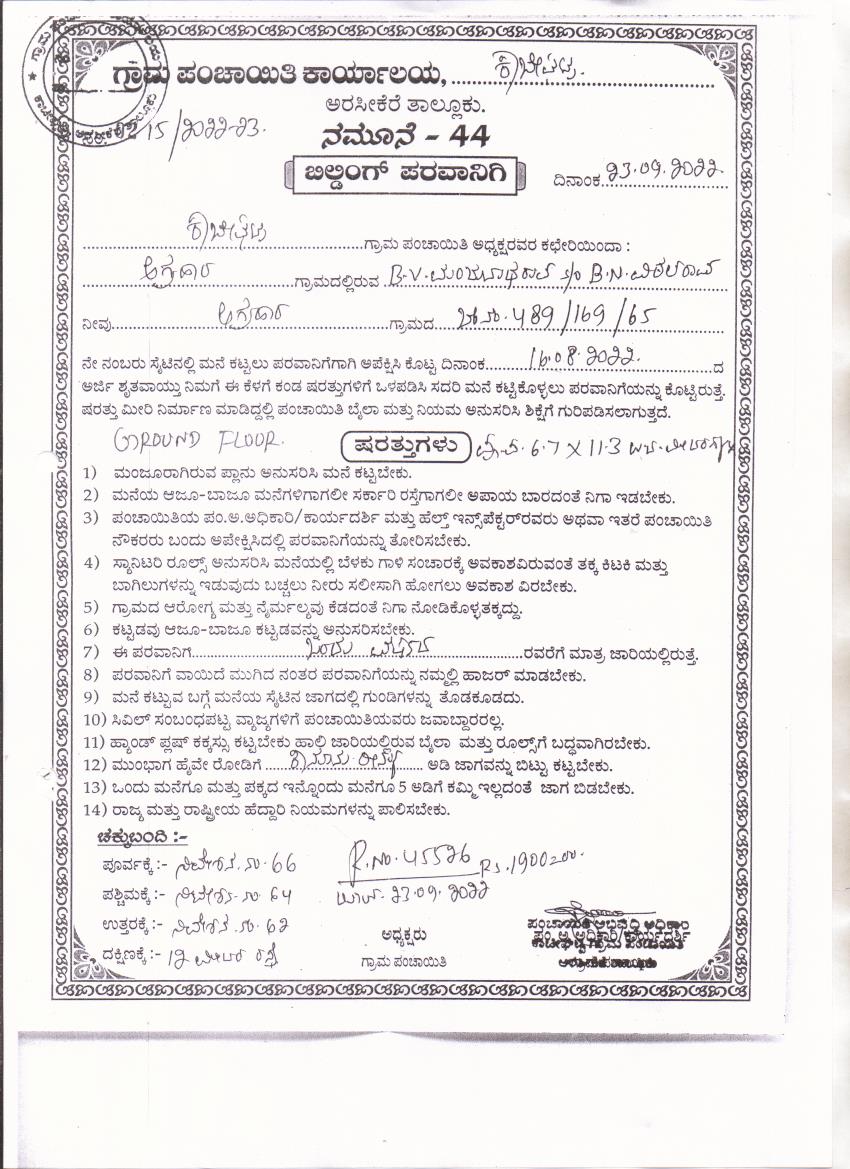 ಗ್ರಾಮ ಪಂಚಾಯಿತಿ ಕಾರ್ಯಾಲಯ,
ಅರಸೀಕೆರೆ ತಾಲ್ಲೂಕು.
215/2022-23.
ನಮೂನೆ - 44
ಬಿಲ್ಡಿಂಗ್ ಪರವಾನಿಗಿ
ದಿನಾಂಕ 23.09.2022
ಗ್ರಾಮ ಪಂಚಾಯಿತಿ ಅಧ್ಯಕ್ಷರವರ ಕಛೇರಿಯಿಂದಾ :
ಅಗ್ರಹಾರ ಗ್ರಾಮದಲ್ಲಿರುವ B.V. ಮಂಜುನಾಥರಾವ್ s/o B.N. ವಿಠಲರಾವ್
ನೀವು ಅಗ್ರಹಾರ ಗ್ರಾಮದ 489/169/65
ನೇ ನಂಬರು ಸೈಟಿನಲ್ಲಿ ಮನೆ ಕಟ್ಟಲು ಪರವಾನಿಗೆಗಾಗಿ ಅಪೇಕ್ಷಿಸಿ ಕೊಟ್ಟ ದಿನಾಂಕ 16.08.2022 ದ
ಅರ್ಜಿ ಶೃತವಾಯ್ತು ನಿಮಗೆ ಈ ಕೆಳಗೆ ಕಂಡ ಷರತ್ತುಗಳಿಗೆ ಒಳಪಡಿಸಿ ಸದರಿ ಮನೆ ಕಟ್ಟಿಕೊಳ್ಳಲು ಪರವಾನಿಗೆಯನ್ನು ಕೊಟ್ಟಿರುತ್ತೆ.
ಷರತ್ತು ಮೀರಿ ನಿರ್ಮಾಣ ಮಾಡಿದ್ದಲ್ಲಿ ಪಂಚಾಯಿತಿ ಬೈಲಾ ಮತ್ತು ನಿಯಮ ಅನುಸರಿಸಿ ಶಿಕ್ಷೆಗೆ ಗುರಿಪಡಿಸಲಾಗುತ್ತದೆ.
GROUND FLOOR. ಷರತ್ತುಗಳು 6.7 X 11.3
1) ಮಂಜೂರಾಗಿರುವ ಪ್ಲಾನು ಅನುಸರಿಸಿ ಮನೆ ಕಟ್ಟಬೇಕು.
2) ಮನೆಯ ಆಜೂ-ಬಾಜೂ ಮನೆಗಳಿಗಾಗಲೀ ಸರ್ಕಾರಿ ರಸ್ತೆಗಾಗಲೀ ಅಪಾಯ ಬಾರದಂತೆ ನಿಗಾ ಇಡಬೇಕು.
3) ಪಂಚಾಯಿತಿಯ ಪಂ.ಅ.ಅಧಿಕಾರಿ/ಕಾರ್ಯದರ್ಶಿ ಮತ್ತು ಹೆಲ್ತ್ ಇನ್ಸ್‌ಪೆಕ್ಟರ್‌ರವರು ಅಥವಾ ಇತರೆ ಪಂಚಾಯಿತಿ
ನೌಕರರು ಬಂದು ಅಪೇಕ್ಷಿಸಿದಲ್ಲಿ ಪರವಾನಿಗೆಯನ್ನು ತೋರಿಸಬೇಕು.
4) ಸ್ಯಾನಿಟರಿ ರೂಲ್ಸ್ ಅನುಸರಿಸಿ ಮನೆಯಲ್ಲಿ ಬೆಳಕು ಗಾಳಿ ಸಂಚಾರಕ್ಕೆ ಅವಕಾಶವಿರುವಂತೆ ತಕ್ಕ ಕಿಟಕಿ ಮತ್ತು
ಬಾಗಿಲುಗಳನ್ನು ಇಡುವುದು ಬಚ್ಚಲು ನೀರು ಸಲೀಸಾಗಿ ಹೋಗಲು ಅವಕಾಶ ವಿರಬೇಕು.
5) ಗ್ರಾಮದ ಆರೋಗ್ಯ ಮತ್ತು ನೈರ್ಮಲ್ಯವು ಕೆಡದಂತೆ ನಿಗಾ ನೋಡಿಕೊಳ್ಳತಕ್ಕದ್ದು.
6) ಕಟ್ಟಡವು ಆಜೂ-ಬಾಜೂ ಕಟ್ಟಡವನ್ನು ಅನುಸರಿಸಬೇಕು.
7) ಈ ಪರವಾನಿಗೆ ಒಂದು ವರ್ಷದ ರವರೆಗೆ ಮಾತ್ರ ಜಾರಿಯಲ್ಲಿರುತ್ತೆ.
8) ಪರವಾನಿಗೆ ವಾಯಿದೆ ಮುಗಿದ ನಂತರ ಪರವಾನಿಗೆಯನ್ನು ನಮ್ಮಲ್ಲಿ ಹಾಜರ್ ಮಾಡಬೇಕು.
9) ಮನೆ ಕಟ್ಟುವ ಬಗ್ಗೆ ಮನೆಯ ಸೈಟಿನ ಜಾಗದಲ್ಲಿ ಗುಂಡಿಗಳನ್ನು ತೊಡಕೂಡದು.
10) ಸಿವಿಲ್ ಸಂಬಂಧಪಟ್ಟ ವ್ಯಾಜ್ಯಗಳಿಗೆ ಪಂಚಾಯಿತಿಯವರು ಜವಾಬ್ದಾರರಲ್ಲ.
11) ಹ್ಯಾಂಡ್ ಪ್ಲಷ್ ಕಕ್ಕಸ್ಸು ಕಟ್ಟಬೇಕು ಹಾಲಿ ಜಾರಿಯಲ್ಲಿರುವ ಬೈಲಾ ಮತ್ತು ರೂಲ್ಸ್‌ಗೆ ಬದ್ಧವಾಗಿರಬೇಕು.
12) ಮುಂಭಾಗ ಹೈವೇ ರೋಡಿಗೆ ಅಡಿ ಜಾಗವನ್ನು ಬಿಟ್ಟು ಕಟ್ಟಬೇಕು.
13) ಒಂದು ಮನೆಗೂ ಮತ್ತು ಪಕ್ಕದ ಇನ್ನೊಂದು ಮನೆಗೂ 5 ಅಡಿಗೆ ಕಮ್ಮಿ ಇಲ್ಲದಂತೆ ಜಾಗ ಬಿಡಬೇಕು.
14) ರಾಜ್ಯ ಮತ್ತು ರಾಷ್ಟ್ರೀಯ ಹೆದ್ದಾರಿ ನಿಯಮಗಳನ್ನು ಪಾಲಿಸಬೇಕು.
ಚಕ್ಕುಬಂದಿ :-
ಪೂರ್ವಕ್ಕೆ :- ನಿವೇಶನ.ನಂ.66 R.No.45526 Rs.1900=00.
ಪಶ್ಚಿಮಕ್ಕೆ :- ನಿವೇಶನ.ನಂ.64 23.09.2022
ಉತ್ತರಕ್ಕೆ :- ನಿವೇಶನ.ನಂ.62
ದಕ್ಷಿಣಕ್ಕೆ :- 12 ಮೀಟರ್ ರಸ್ತೆ
ಅಧ್ಯಕ್ಷರು
ಗ್ರಾಮ ಪಂಚಾಯಿತಿ
ಪಂಚಾಯಿತಿ ಅಭಿವೃದ್ಧಿ ಅಧಿಕಾರಿ
ಪಂ. ಅ. ಅಧಿಕಾರಿ/ಕಾರ್ಯದರ್ಶಿ